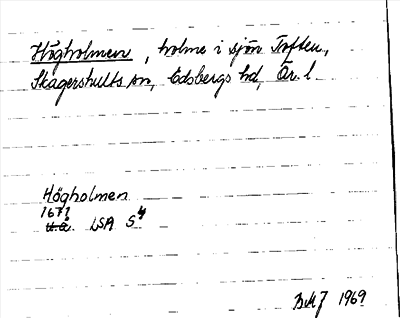 Högholmen, holme i sjön Toften,
Skagershults sn, Edsbergs hd, Ör. l.
Högholmen
1671
u.å. LSA S4
1969